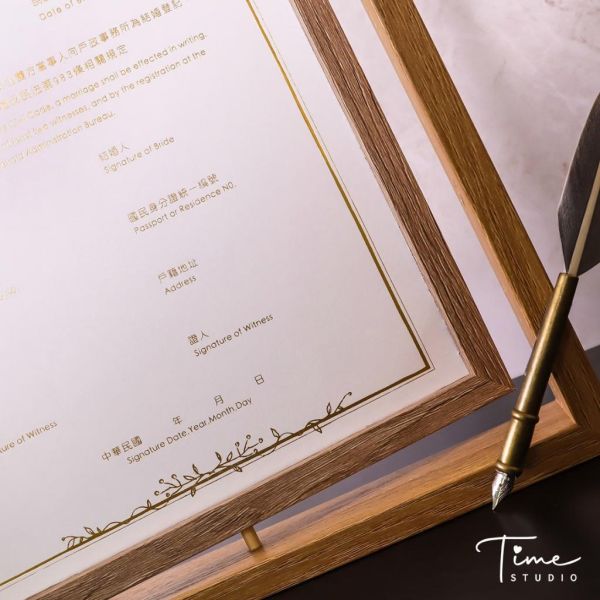 Date of
方當事人向戶政事務所為結婚登記
983條相關規定
Code, a marriage shall be effected in writing,
witnesses, and by the registration at the
Administration Bureau.
結婚人
Signature of Bride
國民身分證統一編號
Passport or Residence NO.
戶籍地址
Address
證人
Signature of Witness
ure of Witness
中華民國 年 月 日
Signature Date,Year,Month,Day
Time
STUDIO